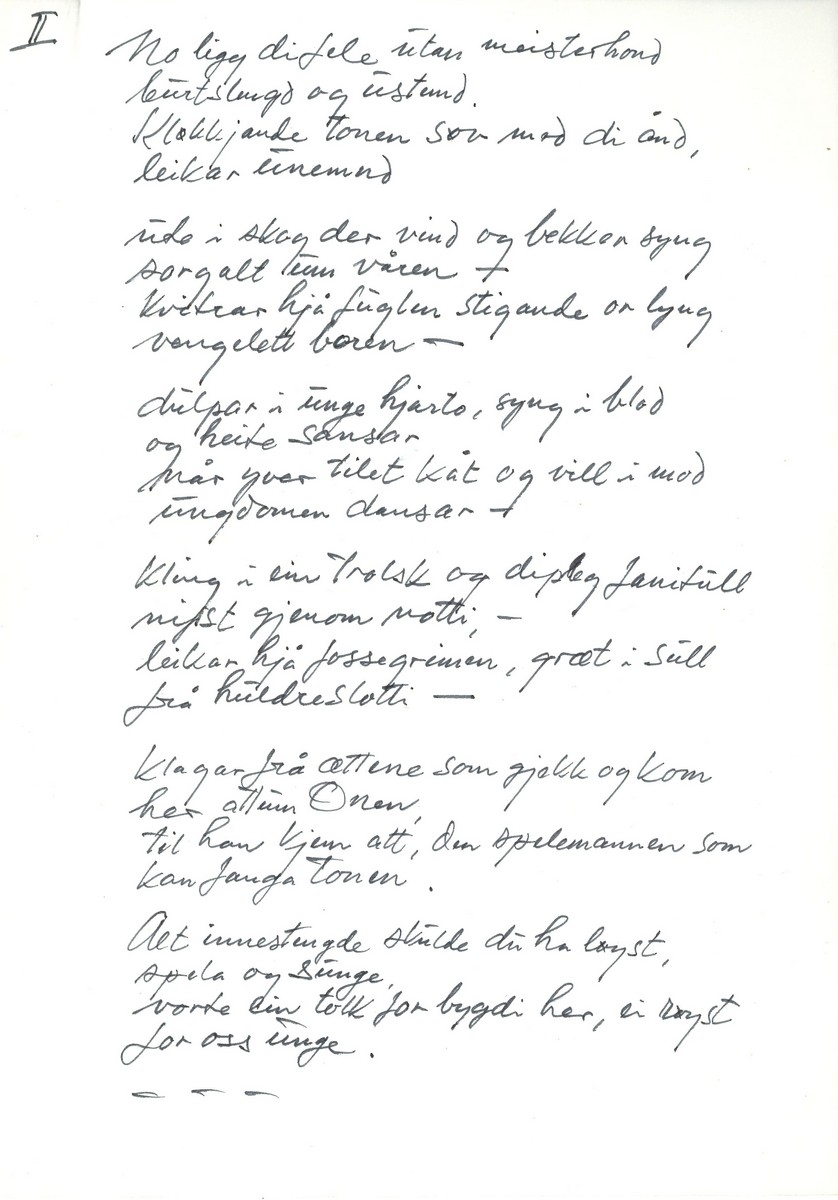 II
No ligg di fele utan meisterhond
burtslengd og ustemd.
Kløkkjande tonen søv med di ånd,
leikar unemnd
ute i skog der vind og bekker syng
sorgalt um våren –
kvitrar hjå fuglen stigande or lyng
vengelett boren –
dulpar i unge hjarto, syng i blod
og heite sansar
når yver tilet kåt og vill i mod
ungdomen dansar –
Kling i ein trolsk og dipleg fanitull
nifst gjenom notti, –
leikar hjå fossegrimen, græt i sull
frå huldreslotti –
Klagar frå ættene som gjekk og kom
her attum Onen,
til han kjem att, den spelemannen som
kan fanga tonen.
Alt innestengde skulde du ha løyst,
spela og sunge,
vorte ein tolk for bygdi her, ei røyst
for oss unge.
– – –